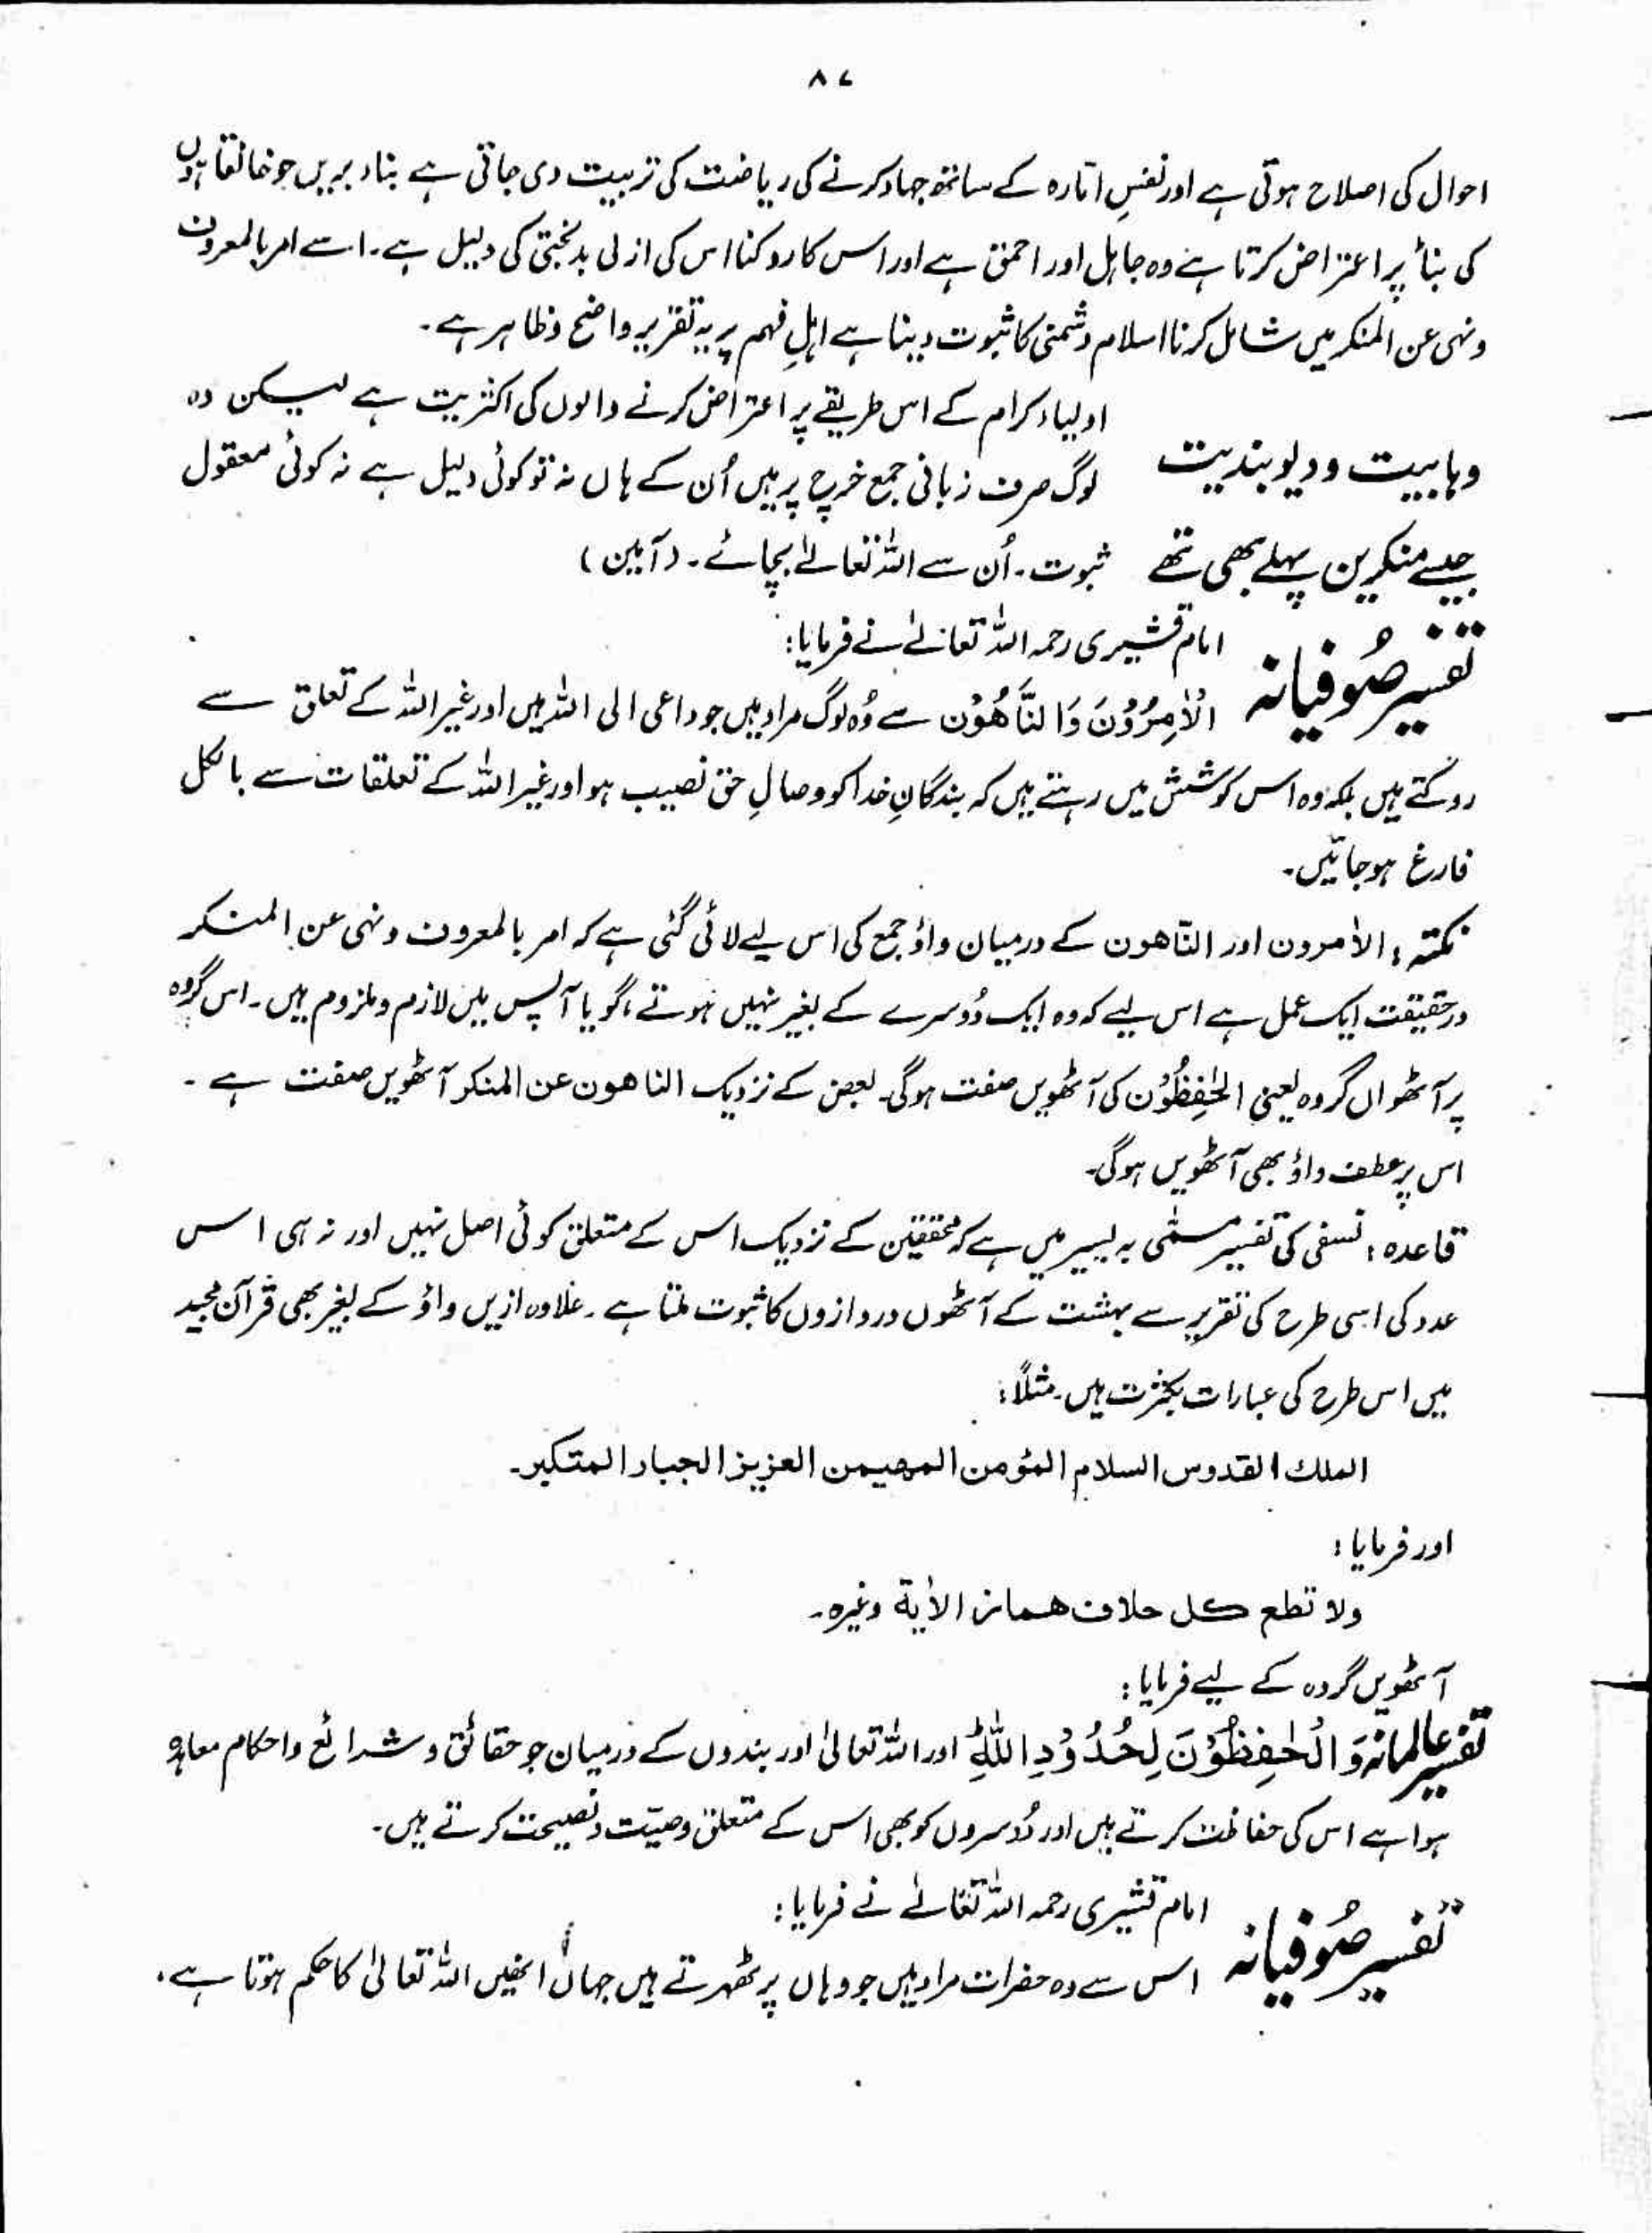 ۸۷
احوال کی اصلاح ہوتی ہے اور نفسِ امّارہ کے ساتھ جہاد کرنے کی ریاضت کی تربیت دی جاتی ہے بناء بریں جو خانقاہوں
کی بنأ پر اعتراض کرتا ہے وہ جاہل اور احمق ہے اور اس کا روکنا اس کی ازلی بدبختی کی دلیل ہے۔ اسے امر بالمعروف
ونہی عن المنکر میں شامل کرنا اسلام دشمنی کا ثبوت دینا ہے اہلِ فہم پر یہ تقریر واضح و ظاہر ہے۔
اولیاء کرام کے اس طریقے پر اعتراض کرنے والوں کی اکثریت ہے لیسکن وہ
وہابیت و دیوبندیت لوگ صرف زبانی جمع خرچ پر ہیں اُن کے ہاں نہ تو کوئی دلیل ہے نہ کوئی معقول
جیسے منکرین پہلے بھی تھے ثبوت۔ اُن سے اللہ تعالےٰ بچائے۔ (آمین)
امام قشیری رحمہ اللہ تعالےٰ نے فرمایا:
تفسیر صُوفیانہ الْاٰمِرُوْنَ وَالنَّاهُوْن سے وُہ لوگ مراد ہیں جو داعی الی اللہ ہیں اور غیر اللہ کے تعلق سے
روکتے ہیں بلکہ وہ اس کوشش میں رہتے ہیں کہ بندگانِ خدا کو وصالِ حق نصیب ہو اور غیر اللہ کے تعلقات سے بالکل
فارغ ہو جائیں۔
نکتہ: الاٰمرون اور النّاهون کے درمیان واؤ جمع کی اس لیے لائی گئی ہے کہ امر بالمعروف ونہی عن المنکر
درحقیقت ایک عمل ہے اس لیے کہ وہ ایک دُوسرے کے بغیر نہیں ہوتے، گویا آپس میں لازم و ملزوم ہیں۔ اس گروہ
پر آٹھواں گروہ یعنی الحٰفِظُوْن کی آٹھویں صفت ہوگی۔ بعض کے نزدیک الناهون عن المنکر آٹھویں صفت ہے۔
اس پر عطف واؤ بھی آٹھویں ہوگی۔
قاعدہ: نسفی کی تفسیر مسمّٰی بہ یسیر میں ہے کہ محققین کے نزدیک اس کے متعلق کوئی اصل نہیں اور نہ ہی اس
عدد کی اسی طرح کی تقریر سے بہشت کے آٹھوں دروازوں کا ثبوت ملتا ہے۔ علاوہ ازیں واؤ کے بغیر بھی قرآن مجید
میں اس طرح کی عبارات بکثرت ہیں۔ مثلاً:
الملك القدوس السلام المؤمن المهيمن العزيز الجبار المتكبر۔
اور فرمایا:
ولا تطع كل حلاف هماز الاٰية وغیرہ۔
آٹھویں گروہ کے لیے فرمایا:
تفسیر عالمانہ وَالْحٰفِظُوْنَ لِحُدُوْدِ اللّٰهِ اور اللہ تعالیٰ اور بندوں کے درمیان جو حقائق و شرائع واحکام معاہدہ
ہوا ہے اس کی حفاظت کرتے ہیں اور دُوسروں کو بھی اس کے متعلق وصیّت و نصیحت کرتے ہیں۔
امام قشیری رحمہ اللہ تعالےٰ نے فرمایا:
تفسیر صُوفیانہ اس سے وہ حضرات مراد ہیں جو وہاں پر ٹھہرتے ہیں جہاں انھیں اللہ تعالیٰ کا حکم ہوتا ہے،